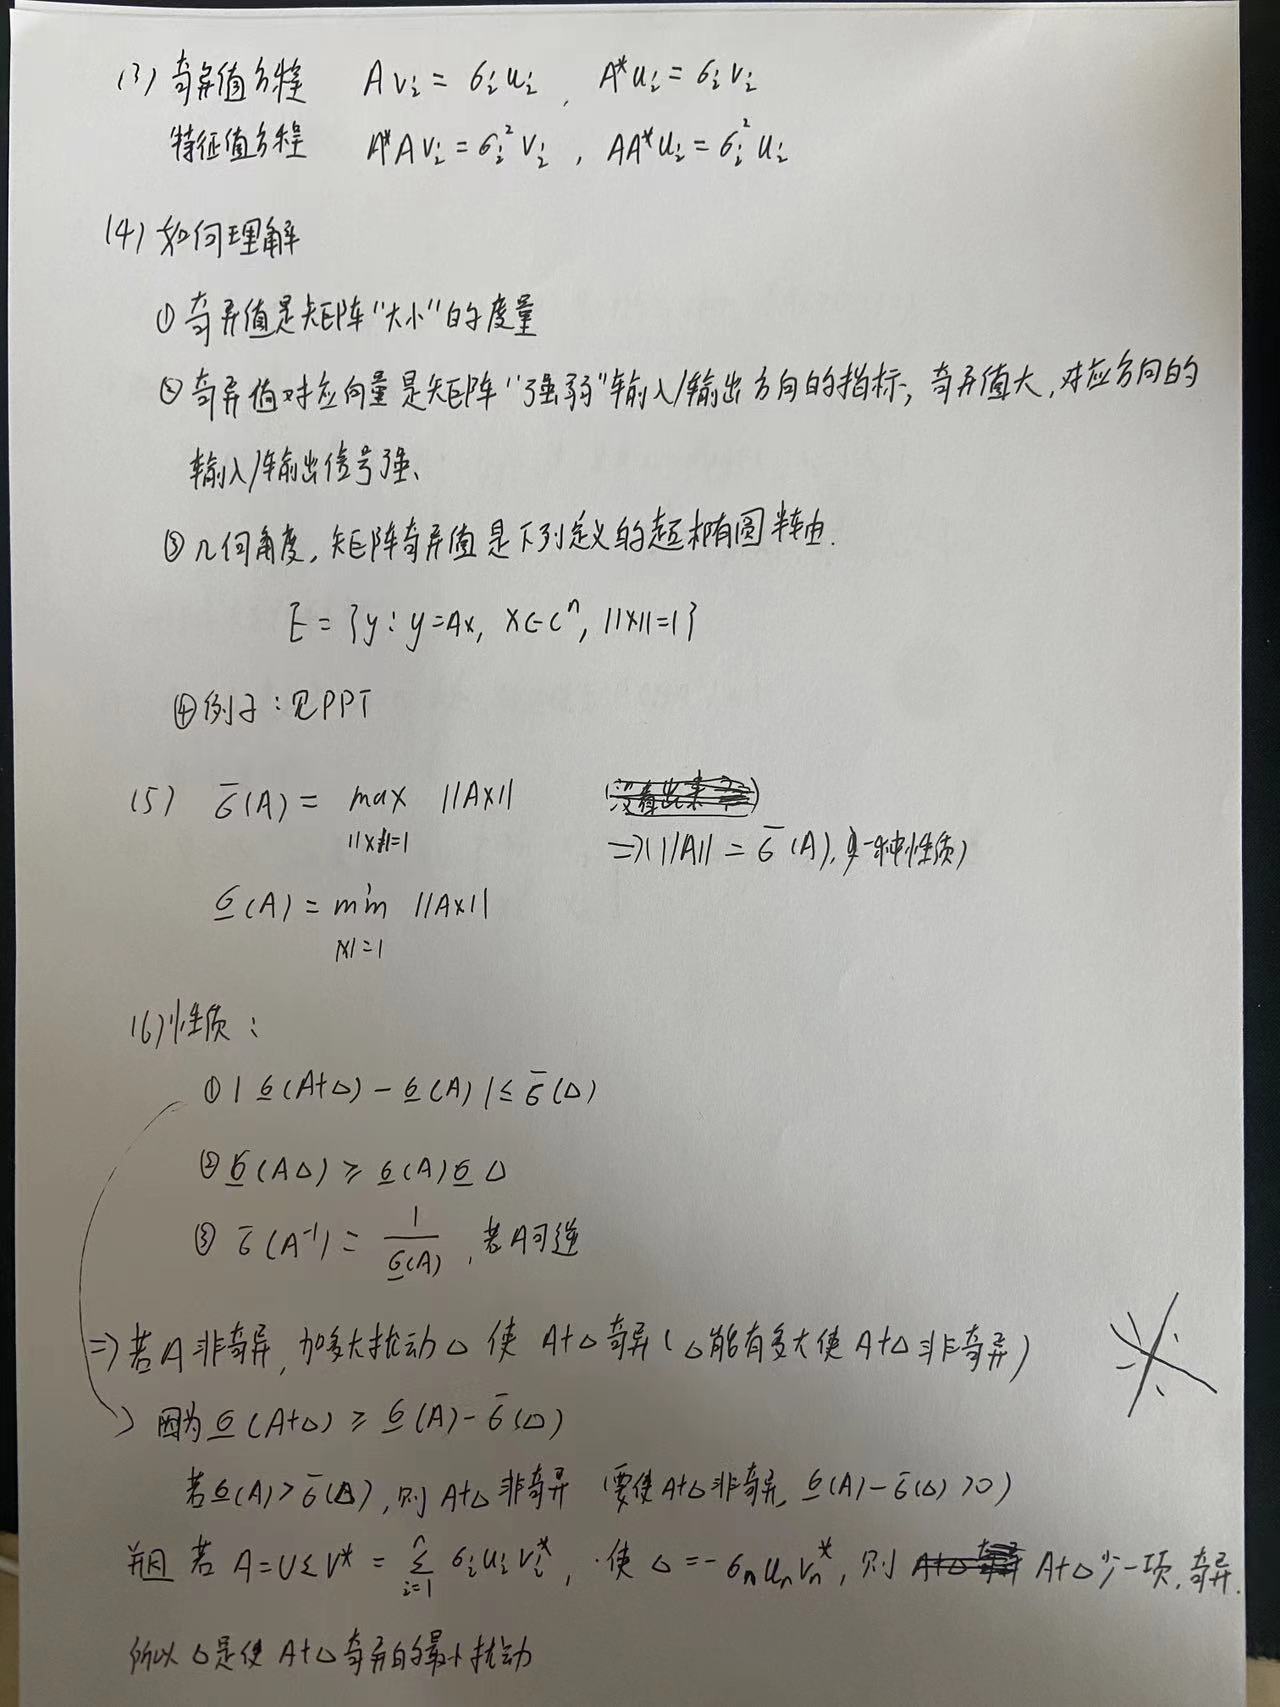 (3) 奇异值方程 Avᵢ = σᵢuᵢ , A*uᵢ = σᵢvᵢ
特征值方程 A*Avᵢ = σᵢ²vᵢ , AA*uᵢ = σᵢ²uᵢ
(4) 如何理解
① 奇异值是矩阵"大小"的度量
② 奇异值对应向量是矩阵"强弱"输入/输出方向的指标, 奇异值大, 对应方向的
输入/输出信号强、
③ 几何角度, 矩阵奇异值是下列定义的超椭圆半轴.
E = {y: y=Ax, x∈Cⁿ, ||x||=1}
④ 例子: 见PPT
(5) σ̄(A) = max ||Ax||
||x||=1
⇒(||A|| = σ̄(A), 一种性质)
σ̲(A) = min ||Ax||
||x||=1
(6) 性质:
① |σ̲(A+Δ) - σ̲(A)| ≤ σ̄(Δ)
② σ̲(AΔ) ≥ σ̲(A)σ̲ Δ
③ σ̄(A⁻¹) = 1/σ̲(A) , 若A可逆
⇒ 若A非奇异, 加多大扰动Δ 使 A+Δ奇异 (Δ能有多大使 A+Δ 非奇异)
因为 σ̲(A+Δ) ≥ σ̲(A) - σ̄(Δ)
若σ̲(A) > σ̄(Δ), 则 A+Δ 非奇异 (要使A+Δ非奇异, σ̲(A) - σ̄(Δ) >0)
若 A = UΣV* = Σⁿᵢ₌₁ σᵢuᵢvᵢ*, 使 Δ = -σₙuₙvₙ*, 则 A+Δ少一项, 奇异.
所以 Δ是使 A+Δ 奇异的最小扰动